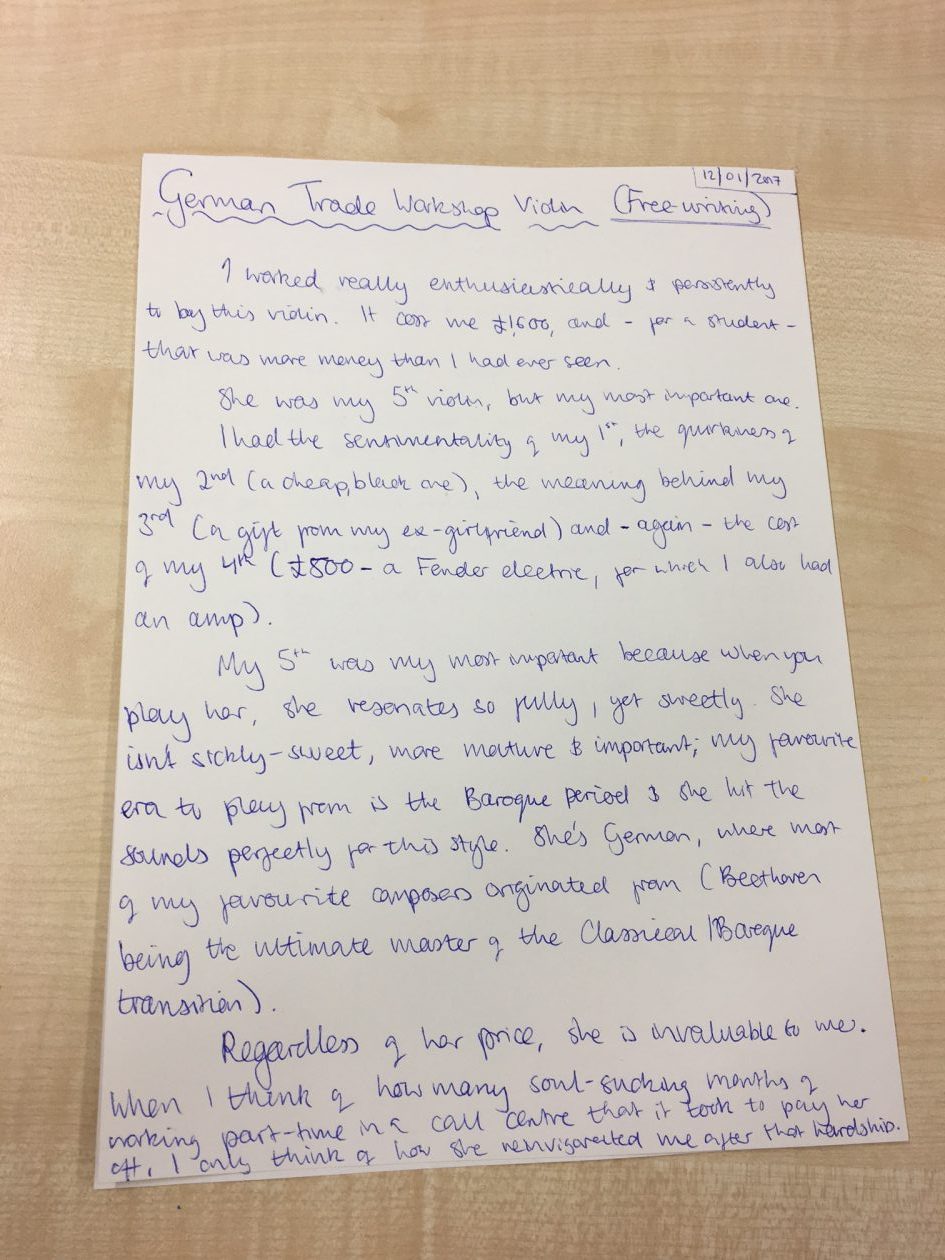 12/01/2017
German Trade Workshop Violin (Free-writing)
I worked really enthusiastically & persistently
to by this violin. It cost me £1,600, and - for a student -
that was more money than I had ever seen.
She was my 5th violin, but my most important one.
I had the sentimentality of my 1st, the quirkiness of
my 2nd (a cheap, black one), the meaning behind my
3rd (a gift from my ex-girlfriend) and - again - the cost
of my 4th (£800 - a Fender electric, for which I also had
an amp).
My 5th was my most important because when you
play her, she resonates so fully, yet sweetly. She
isn't sickly-sweet, more mature & important; my favourite
era to play from is the Baroque period & she hit the
sounds perfectly for this style. She's German, where most
of my favourite composers originated from (Beethoven
being the ultimate master of the Classical/Baroque
transition).
Regardless of her price, she is invaluable to me.
When I think of how many soul-sucking months of
working part-time in a call centre that it took to pay her
off, I only think of how she reinvigorated me after that hardship.